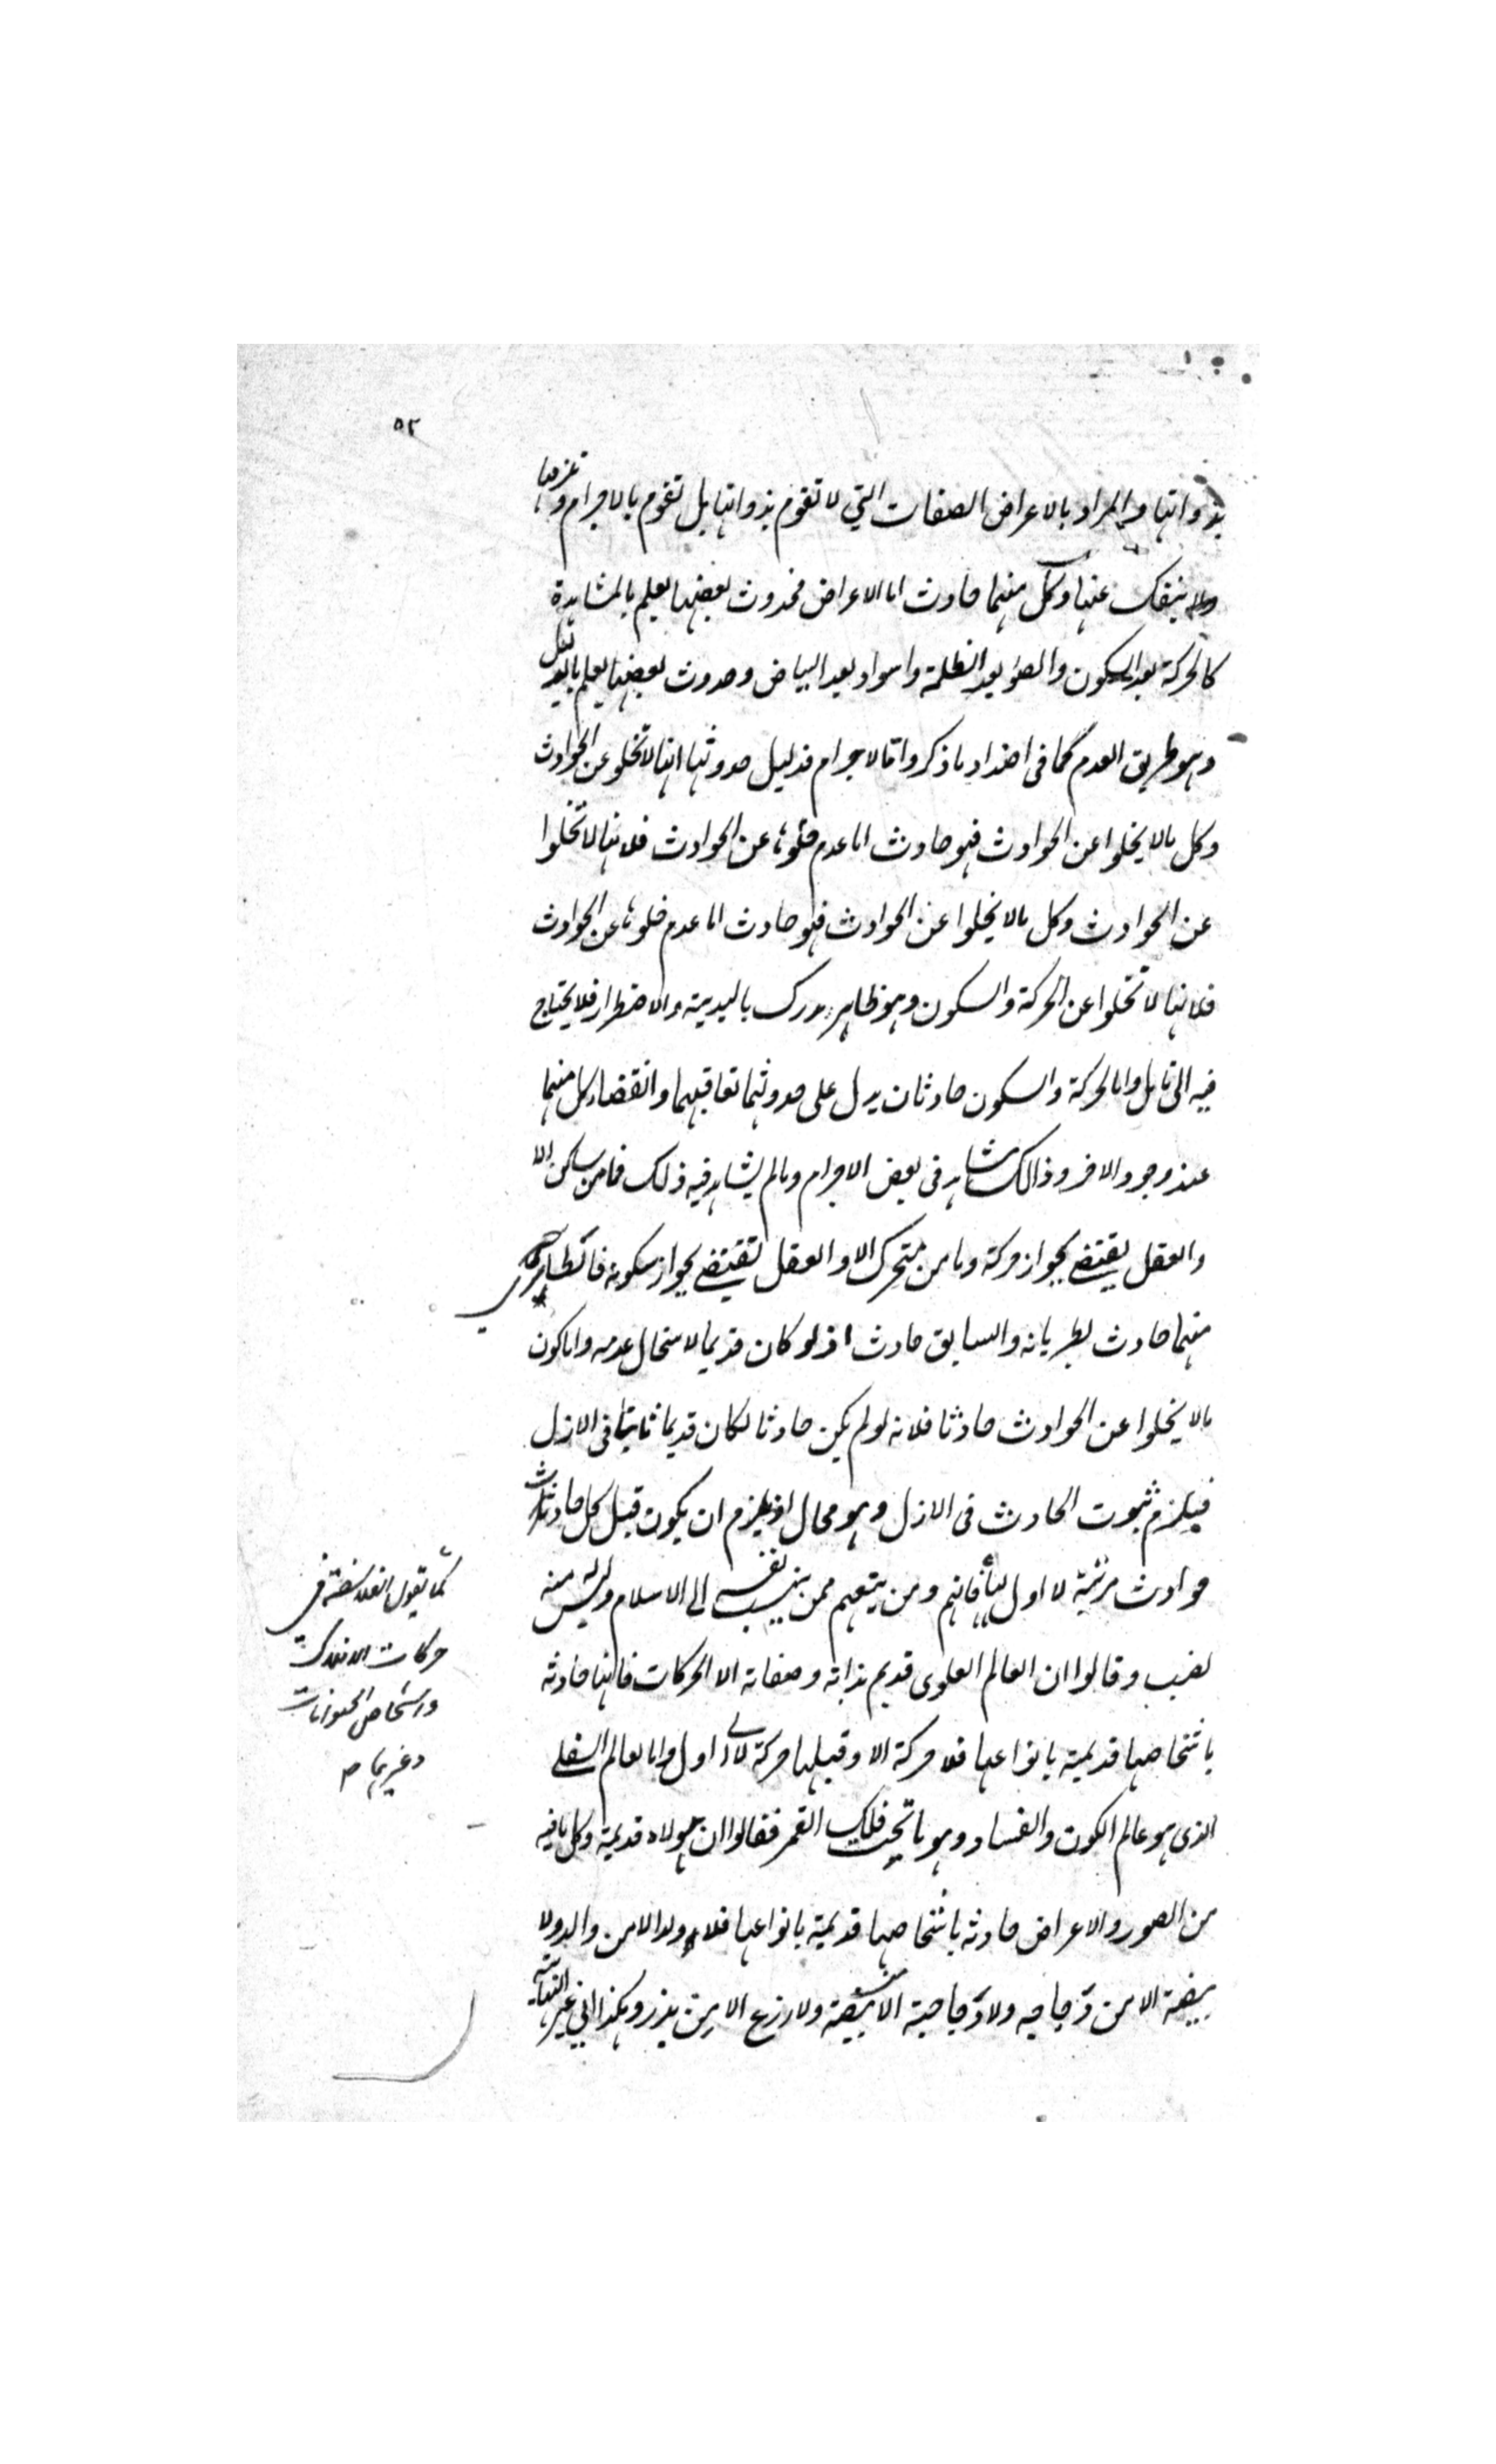 ٥٢
بذواتها والمراد بالاعراض الصفات التي لا تقوم بذواتها بل تقوم بالاجرام و
ولا ينفك عنها وكل منهما حادث اما الاعراض فحدوث بعضها يعلم بالمشاهدة
كالحركة بعد السكون والضوء بعد الظلمة واسواد بعد البياض وحدوث بعضها يعلم بالدليل
وهو طريق العدم كما في اضداد ما ذكر واما الاجرام فدليل حدوثها انها لا تخلو عن الحوادث
وكل مالا يخلوا عن الحوادث فهو حادث اما عدم خلوها عن الحوادث فلانها لا تخلوا
عن الحوادث وكل مالا يخلوا عن الحوادث فهو حادث اما عدم خلوها عن الحوادث
فلانها لا تخلوا عن الحركة والسكون وهو ظاهر مدرك بالبديهة والاضطرار فلا يحتاج
فيه الى تامل واما الحركة والسكون حادثان يدل على حدوثهما تعاقبهما وانقضاء كل منهما
عند وجود الاخر وذالك مشاهد في بعض الاجرام ومالم يشاهد فيه ذلك فما من ساكن الا
والعقل يقتضي بجواز حركته وما من متحرك الا والعقل يقتضي بجواز سكونه فالطاري
منهما حادث بطريانه والسابق حادث اذ لو كان قديما لاستحال عدمه واما كون
مالا يخلوا عن الحوادث حادثا فلانه لو لم يكن حادثا لكان قديما ثابتا في الازل
فيلزم ثبوت الحادث في الازل وهو محال اذ يلزم ان يكون قبل كل حادث
حوادث مرتبة لا اول لها فانهم ومن يتبعهم ممن ينسب نفسه الى الاسلام وليس له منه
نصيب وقالوا ان العالم العلوى قديم بذاته وصفاته الا الحركات فانها حادثه
باشخاصها قديمة بانواعها فلا حركة الا وقبلها حركة لا الى اول واما العالم السفلي
الذى هو عالم الكون والفساد وهو ما تحت فلك القمر فقالوا ان هيولاه قديمة وكل ما فيه
من الصور والاعراض حادثه باشخاصها قديمة بانواعها فلا ولد الا من والد ولا
بيضة الا من دجاجه ولا دجاجة الا من بيضة ولا زرع الا من بذر وهكذا الى غير النهاية
كما تقول الفلاسفة في
حركات الافلاك
واشخاص الحيوانات
وغيرهما م